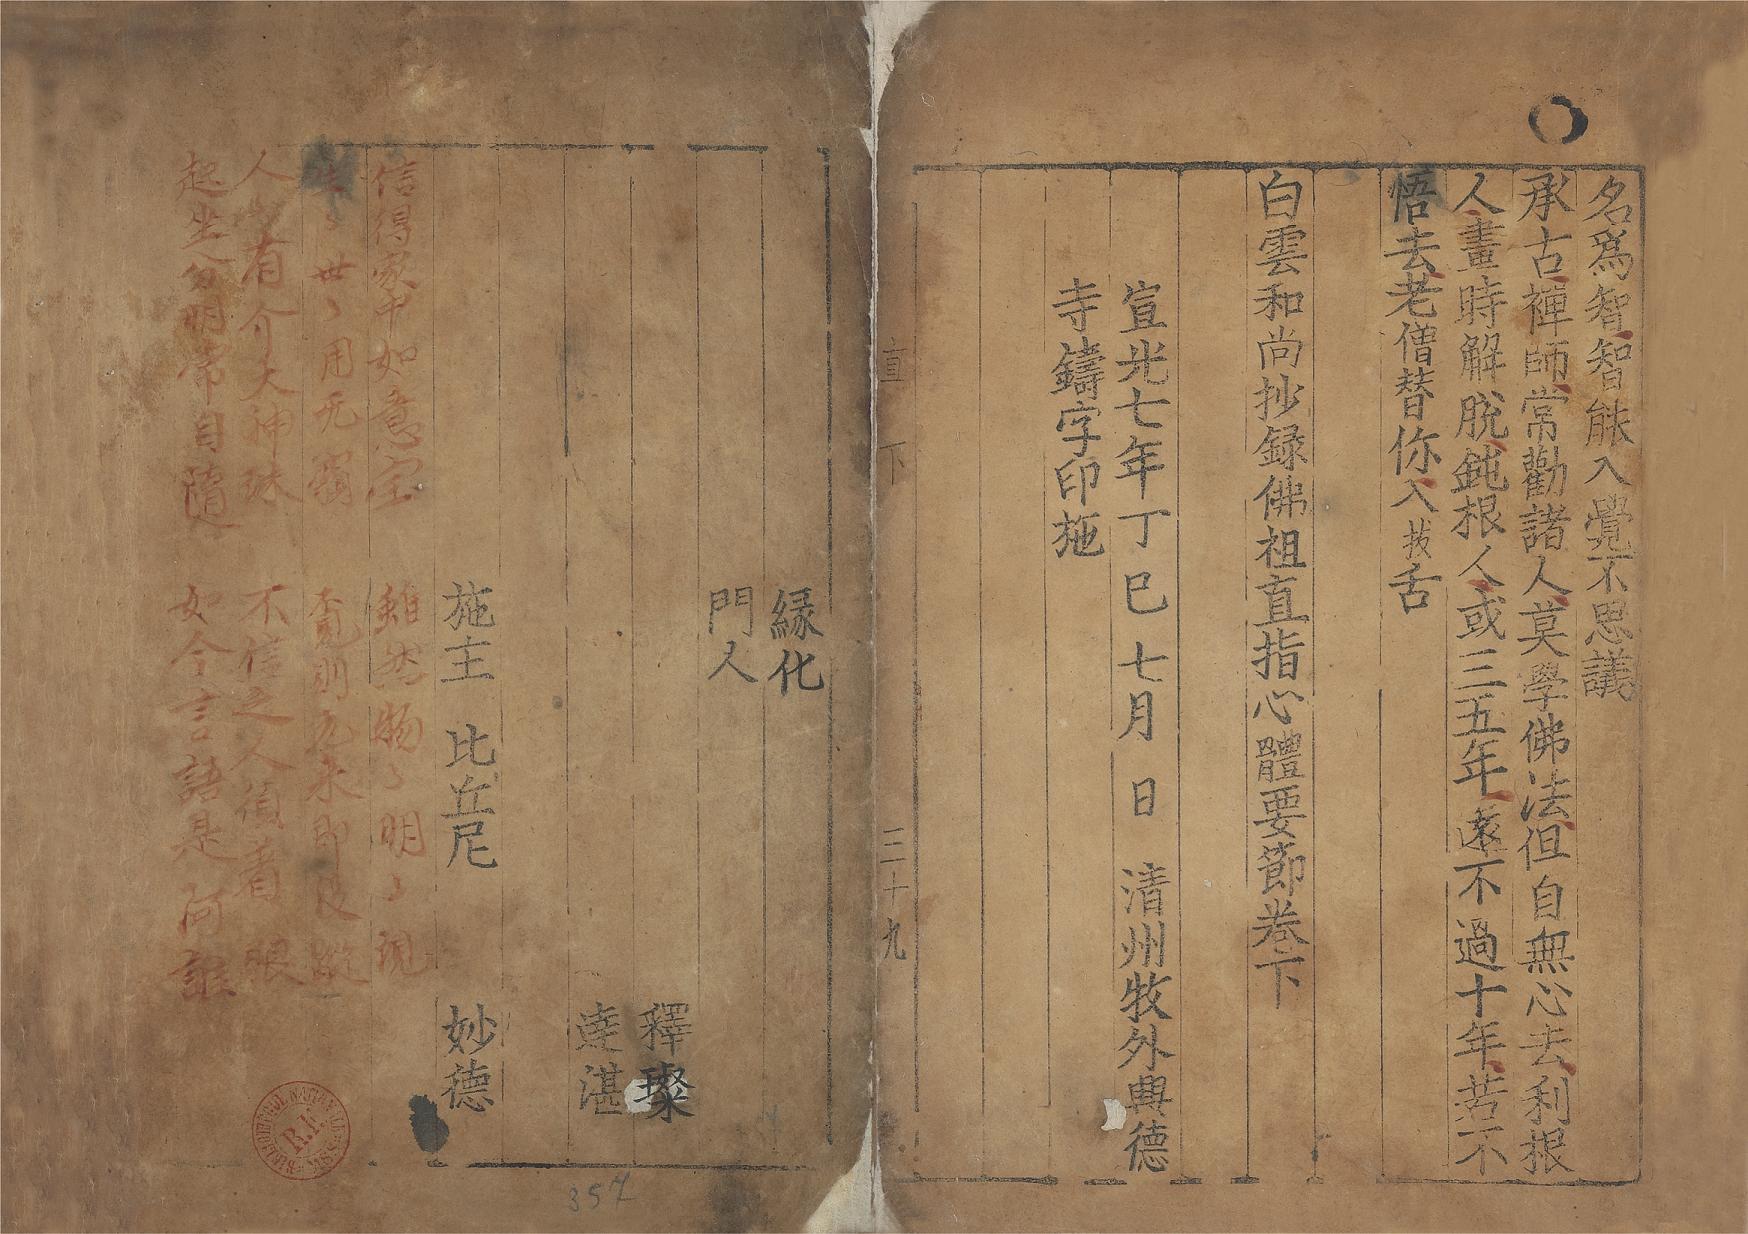 名爲智智能入覺不思議
承古禪師常勸諸人莫學佛法但自無心去利根
人畫時解脫鈍根人或三五年遠不過十年若不
悟去老僧替你入拔舌
白雲和尚抄録佛祖直指心體要節卷下
宣光七年丁巳七月 日 清州牧外興德
寺鑄字印施
直 下 三十九
緣化
門人
釋璨
達湛
施主 比丘尼 妙德
信得家中如意宝 雖然物〻明〻現
生〻世〻用无窮 覔則元来即没蹤
人〻有介大神珠
不信之人須着眼
起坐分明常自隨 如今言語是何誰
BIBLIOTHÈQUE NATIONALE MSS
R.F.
357